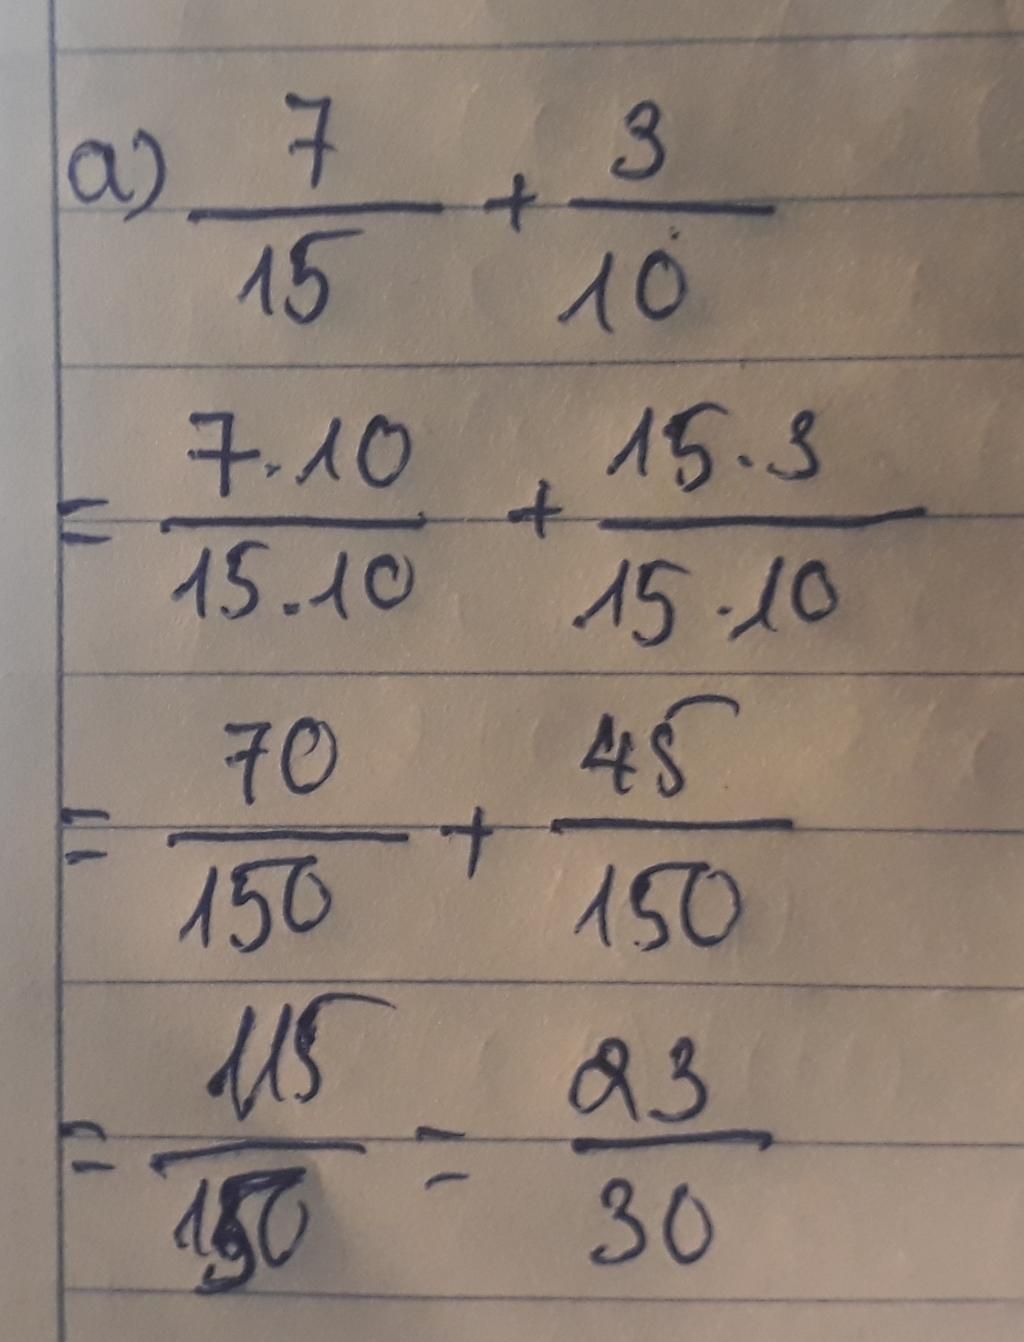 a) 7/15 + 3/10
= 7.10/15.10 + 15.3/15.10
= 70/150 + 45/150
= 115/150 = 23/30